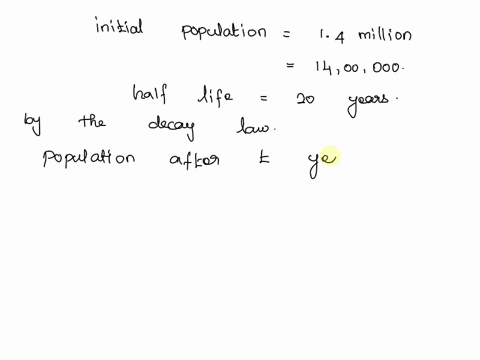 initial population = 1.4 million
= 14,00,000.
half life = 20 years.
by the decay law.
population after t ye